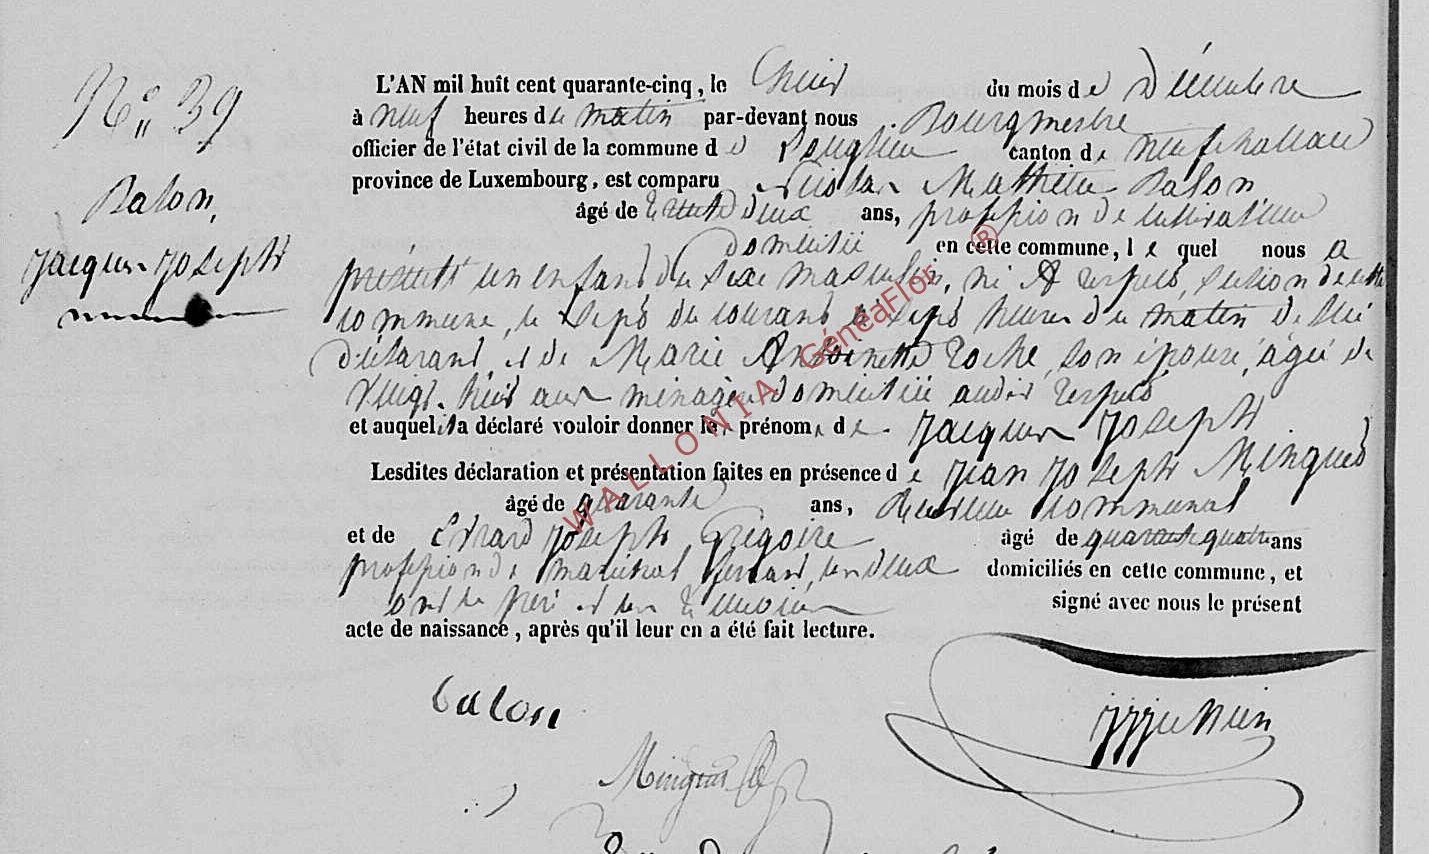 N° 39
Balon,
Jacques Joseph
L'AN mil huit cent quarante-cinq, le huit du mois de Décembre
à neuf heures du matin par-devant nous Bourgmestre
officier de l'état civil de la commune de Longlier canton de Neufchateau
province de Luxembourg, est comparu Nicolas Mathieu Balon
âgé de trente deux ans, profession de cultivateur
domicilié en cette commune, lequel nous a
présenté un enfant du sexe masculin, né à, section de cette
commune, le sept du courant à sept heures du matin de lui
déclarant, et de Marie Antoinette Roche, son épouse, âgée de
vingt-huit ans ménagère domiciliée audit
et auquel il a déclaré vouloir donner les prénoms de Jacques Joseph
Lesdites déclaration et présentation faites en présence de Jean Joseph Minguet
âgé de quarante ans, Receveur communal
et de Erard Joseph Grégoire âgé de quarante quatre ans
profession de maréchal ferrant, les deux domiciliés en cette commune, et
ont le père et les témoins signé avec nous le présent
acte de naissance, après qu'il leur en a été fait lecture.
balon
Minguet
WALLONIA GénéaFlor ®